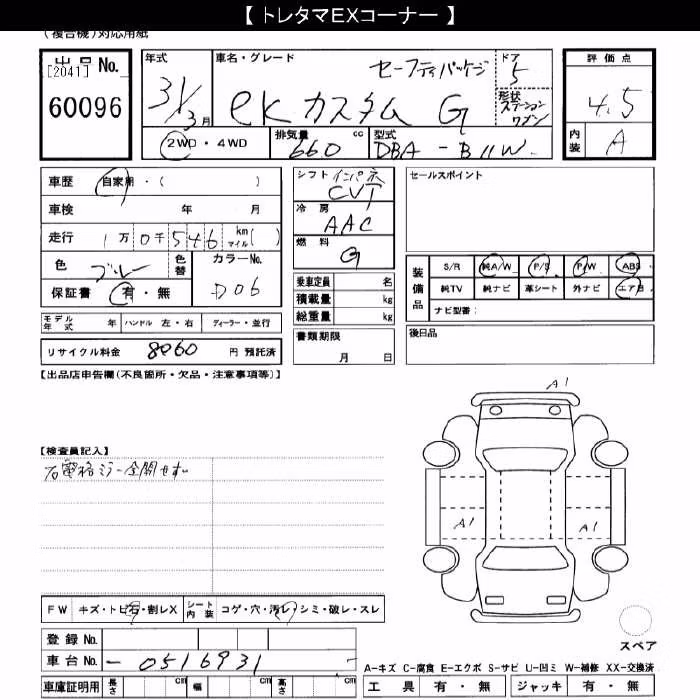 【 トレタマEXコーナー 】
(複合機)対応用紙
出品 No.
[2041]
60096
年式
31/3月
車名・グレード
セーフティパッケジ
eKカスタム G
ドア
5
形状
ステーションワゴン
評価点
4.5
内装
A
2WD・4WD
排気量 cc
660
型式
DBA-B11W
車歴 自家用・( )
車検 年 月
走行 1万0千546 km マイル( )
色 ブルー
色替
カラーNo.
D06
保証書 有・無
モデル年式 年 ハンドル 左・右 ディーラー・並行
リサイクル料金 8060 円 預託済
シフト インパネ
CVT
冷房
AAC
燃料
G
乗車定員 名
積載量 kg
総重量 kg
書類期限
月 日
セールスポイント
装備品
S/R 純A/W P/S P/W ABS
純TV 純ナビ 革シート 外ナビ エアB
ナビ型番:
後日品
【出品店申告欄(不良箇所・欠品・注意事項等)】
【検査員記入】
右電格ミラー全開せず
FW キズ・トビ石・割レX シート内装 コゲ・穴・汚レ・シミ・破レ・スレ
登録 No.
車台 No. - 0516931 -
車庫証明用 長さ cm 幅 cm 高さ cm
A1
A1
A1
スペア
A-キズ C-腐食 E-エクボ S-サビ U-凹ミ W-補修 XX-交換済
工具 有・無 ジャッキ 有・無